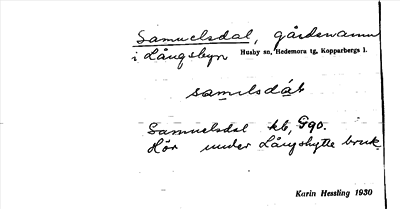 Samuelsdal, gårdsnamn
i Långsbyn Husby sn, Hedemora tg, Kopparbergs l.
samulsdá̱l
Samuelsdal kb, G90.
Hör under Långshytte bruk.
Karin Hessling 1930